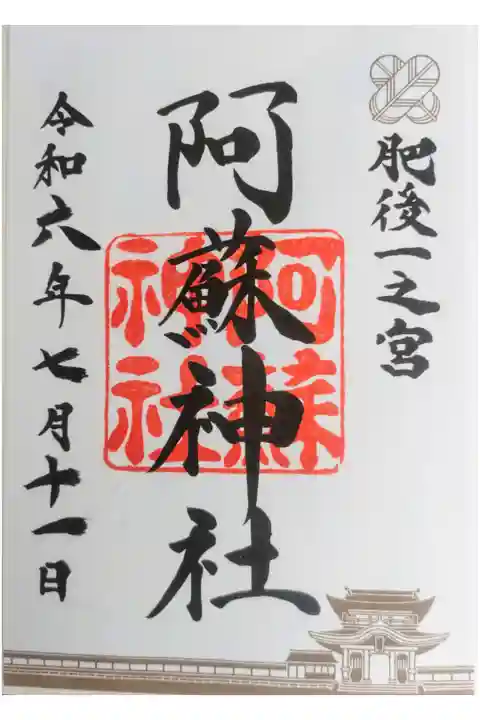 肥後一之宮
阿蘇神社
阿蘇
神社
令和六年七月十一日